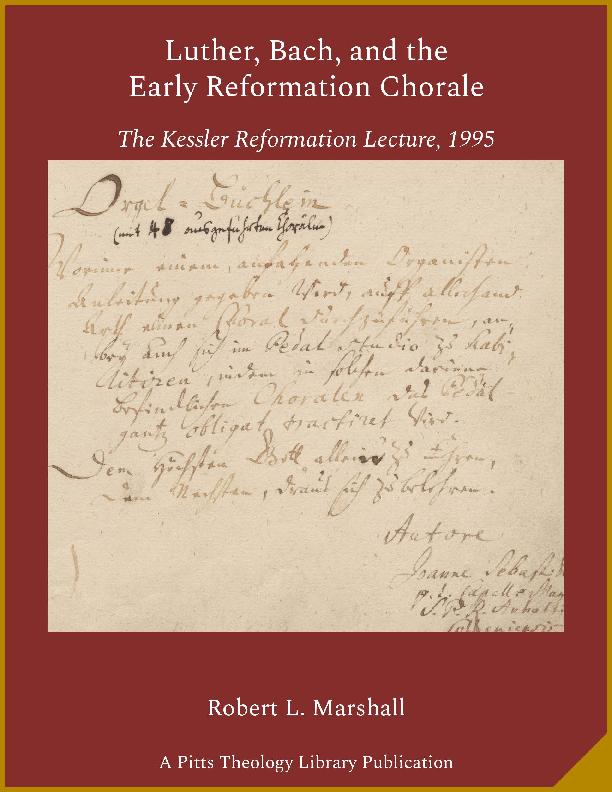 Luther, Bach, and the
Early Reformation Chorale
The Kessler Reformation Lecture, 1995
Orgel-Büchlein
(mit 48 ausgeführten Chorälen)
Worinne einem anfahenden Organisten
Anleitung gegeben wird, auff allerhand
Arth einen Choral durchzuführen, an-
bey auch sich im Pedal studio zu habi-
litiren, indem in solchen darinne
befindlichen Choralen das Pedal
gantz obligat tractiret wird.
Dem Höchsten Gott allein zu Ehren,
Dem Nechsten, draus sich zu belehren.
Autore
Joanne Sebast:
p. t. Capellæ Mag
S. P. R. Anhalt-
Cotheniensis
Robert L. Marshall
A Pitts Theology Library Publication